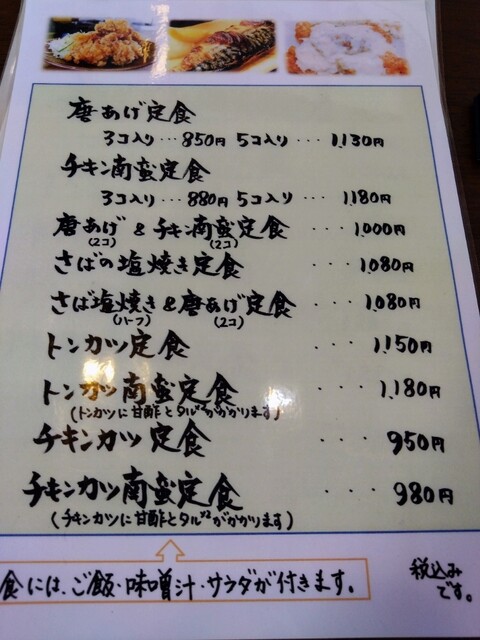 唐あげ定食
3コ入り…850円 5コ入り…1,130円
チキン南蛮定食
3コ入り…880円 5コ入り…1,180円
唐あげ&チキン南蛮定食 … 1,000円
(2コ) (2コ)
さばの塩焼き定食 … 1,080円
さば塩焼き&唐あげ定食 … 1,080円
(ハーフ) (2コ)
トンカツ定食 … 1,150円
トンカツ南蛮定食 … 1,180円
(トンカツに甘酢とタルタルがかかります)
チキンカツ定食 … 950円
チキンカツ南蛮定食 … 980円
(チキンカツに甘酢とタルタルがかかります)
食には、ご飯・味噌汁・サラダが付きます。
税込み
です。